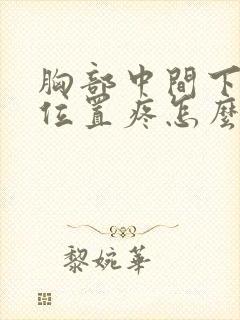 胸部中間下
位置疼怎麼
黎婉華